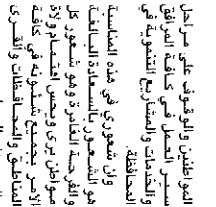 المواطنين والوقوف على مراحل
سير العمل في كافة المرافق
والخدمات والمشاريع التنموية في
المحافظة.
وان شعوري في هذه المناسبة
هو الشعور بالسعادة البالغة
والفرحة الغامرة وهو شعور كل
مواطن يرى ويحس اهتمام ولاة
الامر بجميع شئونه في كافة
المناطق والمحافظات والقرى